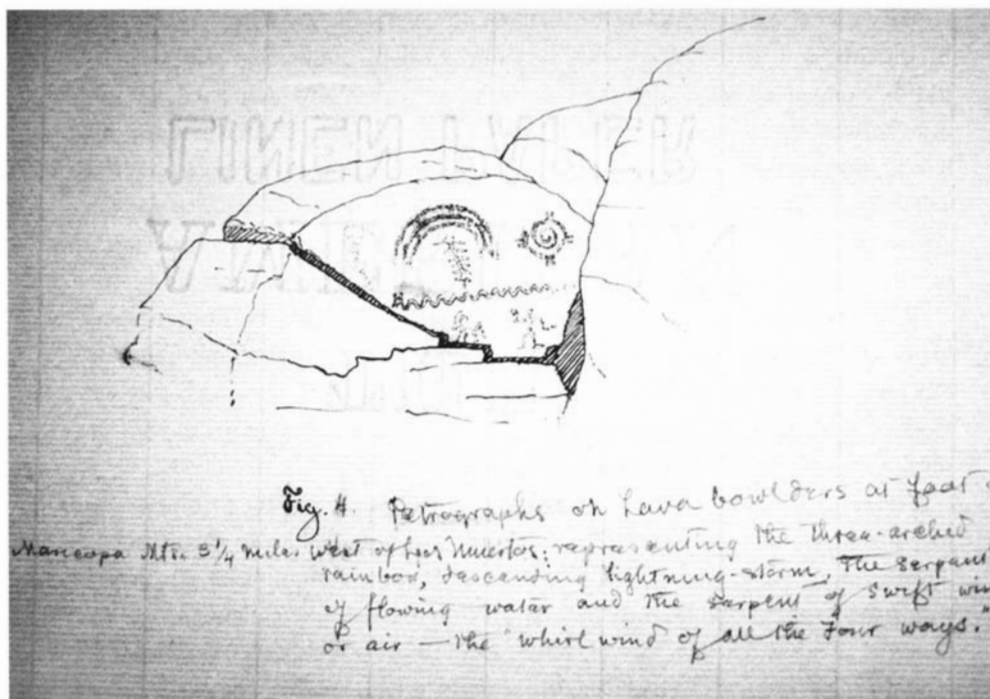 LINEN
Fig. 4. Petrographs on Lava bowlders at foot
Maricopa Mts. 3¼ miles west of Los Muertos; representing the three-arched
rainbow, descending lightning-storm, The serpent
of flowing water and the serpent of swift
or air — the "whirl wind of all the Four ways."